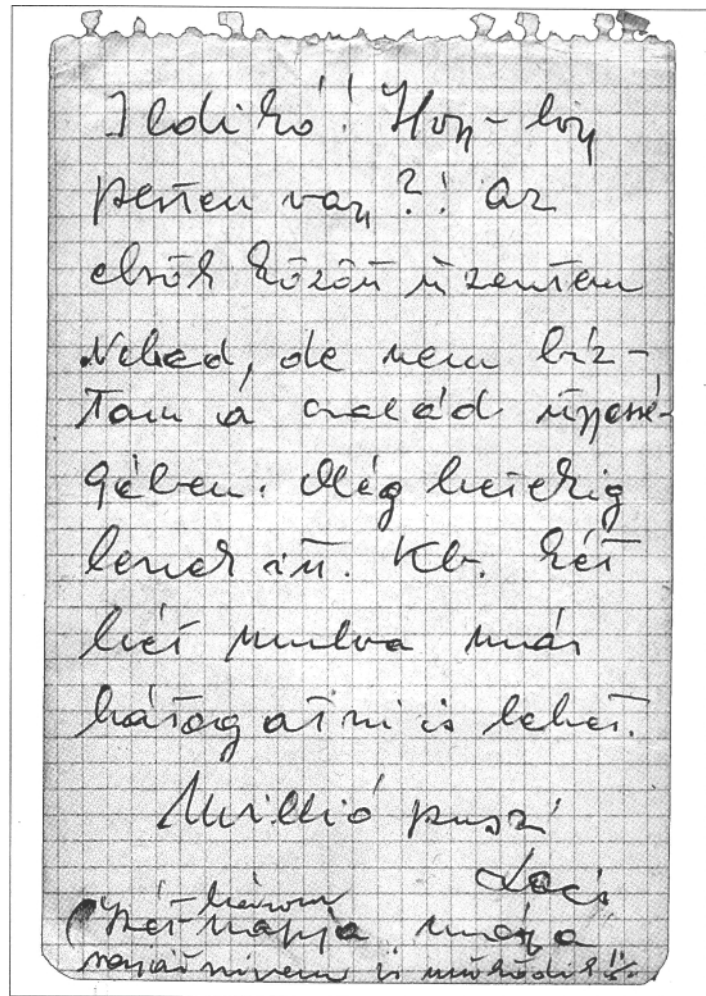 Ildikó! Hogy-hogy
pesten vagy?! Az
elsők között üzentem
Neked, de nem bíz-
tam a család ügyessé-
gében. Még hetekig
leszek itt. Kb. két
hét mulva már
látogatni is lehet.
Millió puszi
Laci
(két-három
napja már a
saját szívem is működik!!).